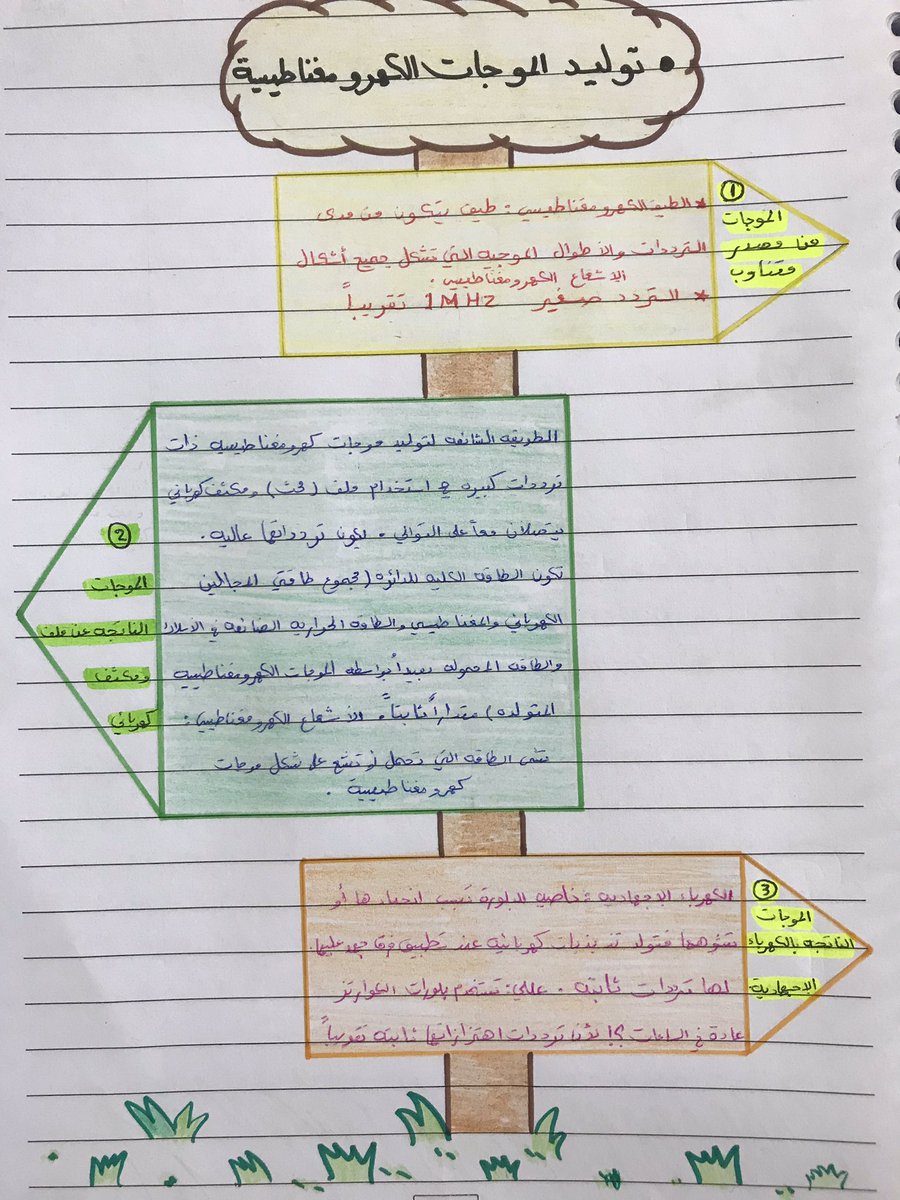 • توليد الموجات الكهرومغناطيسية
①
الموجات
من مصدر
متناوب
* الطيف الكهرومغناطيسي: طيف يتكون من مدى
الترددات والأطوال الموجيه التي تشكل جميع أشكال
الإشعاع الكهرومغناطيسي.
* التردد صغير 1MHz تقريباً
②
الموجات
الناتجه عن ملف
ومكثف
كهربائي
الطريقه الشائعه لتوليد موجات كهرومغناطيسيه ذات
ترددات كبيره هي استخدام ملف (محث) ومكثف كهربائي
يتصلان معاً على التوالي. يكون تردداتها عاليه.
تكون الطاقه الكليه للدائرة (مجموع طاقتي المجالين
الكهربائي والمغناطيسي والطاقه الحراريه الضائعه في الاسلاك
والطاقه المحموله بعيداً بواسطه الموجات الكهرومغناطيسيه
المتولده) مقداراً ثابتاً. الأشعاع الكهرومغناطيسي:
تسمى الطاقه التي تحمل أو تشع على شكل موجات
كهرومغناطيسية.
③
الموجات
الناتجه بالكهرباء
الإجهاديه
الكهرباء الإجهاديه: خاصيه البلورة تسبب انحناءها أو
تشوهها فتولد تذبذبات كهربائيه عند تطبيق فرق جهد عليها.
لها ترددات ثابته. عللي: تستخدم بلورات الكوارتز
عادة في الساعات؟! لأن ترددات اهتزازاتها ثابته تقريباً